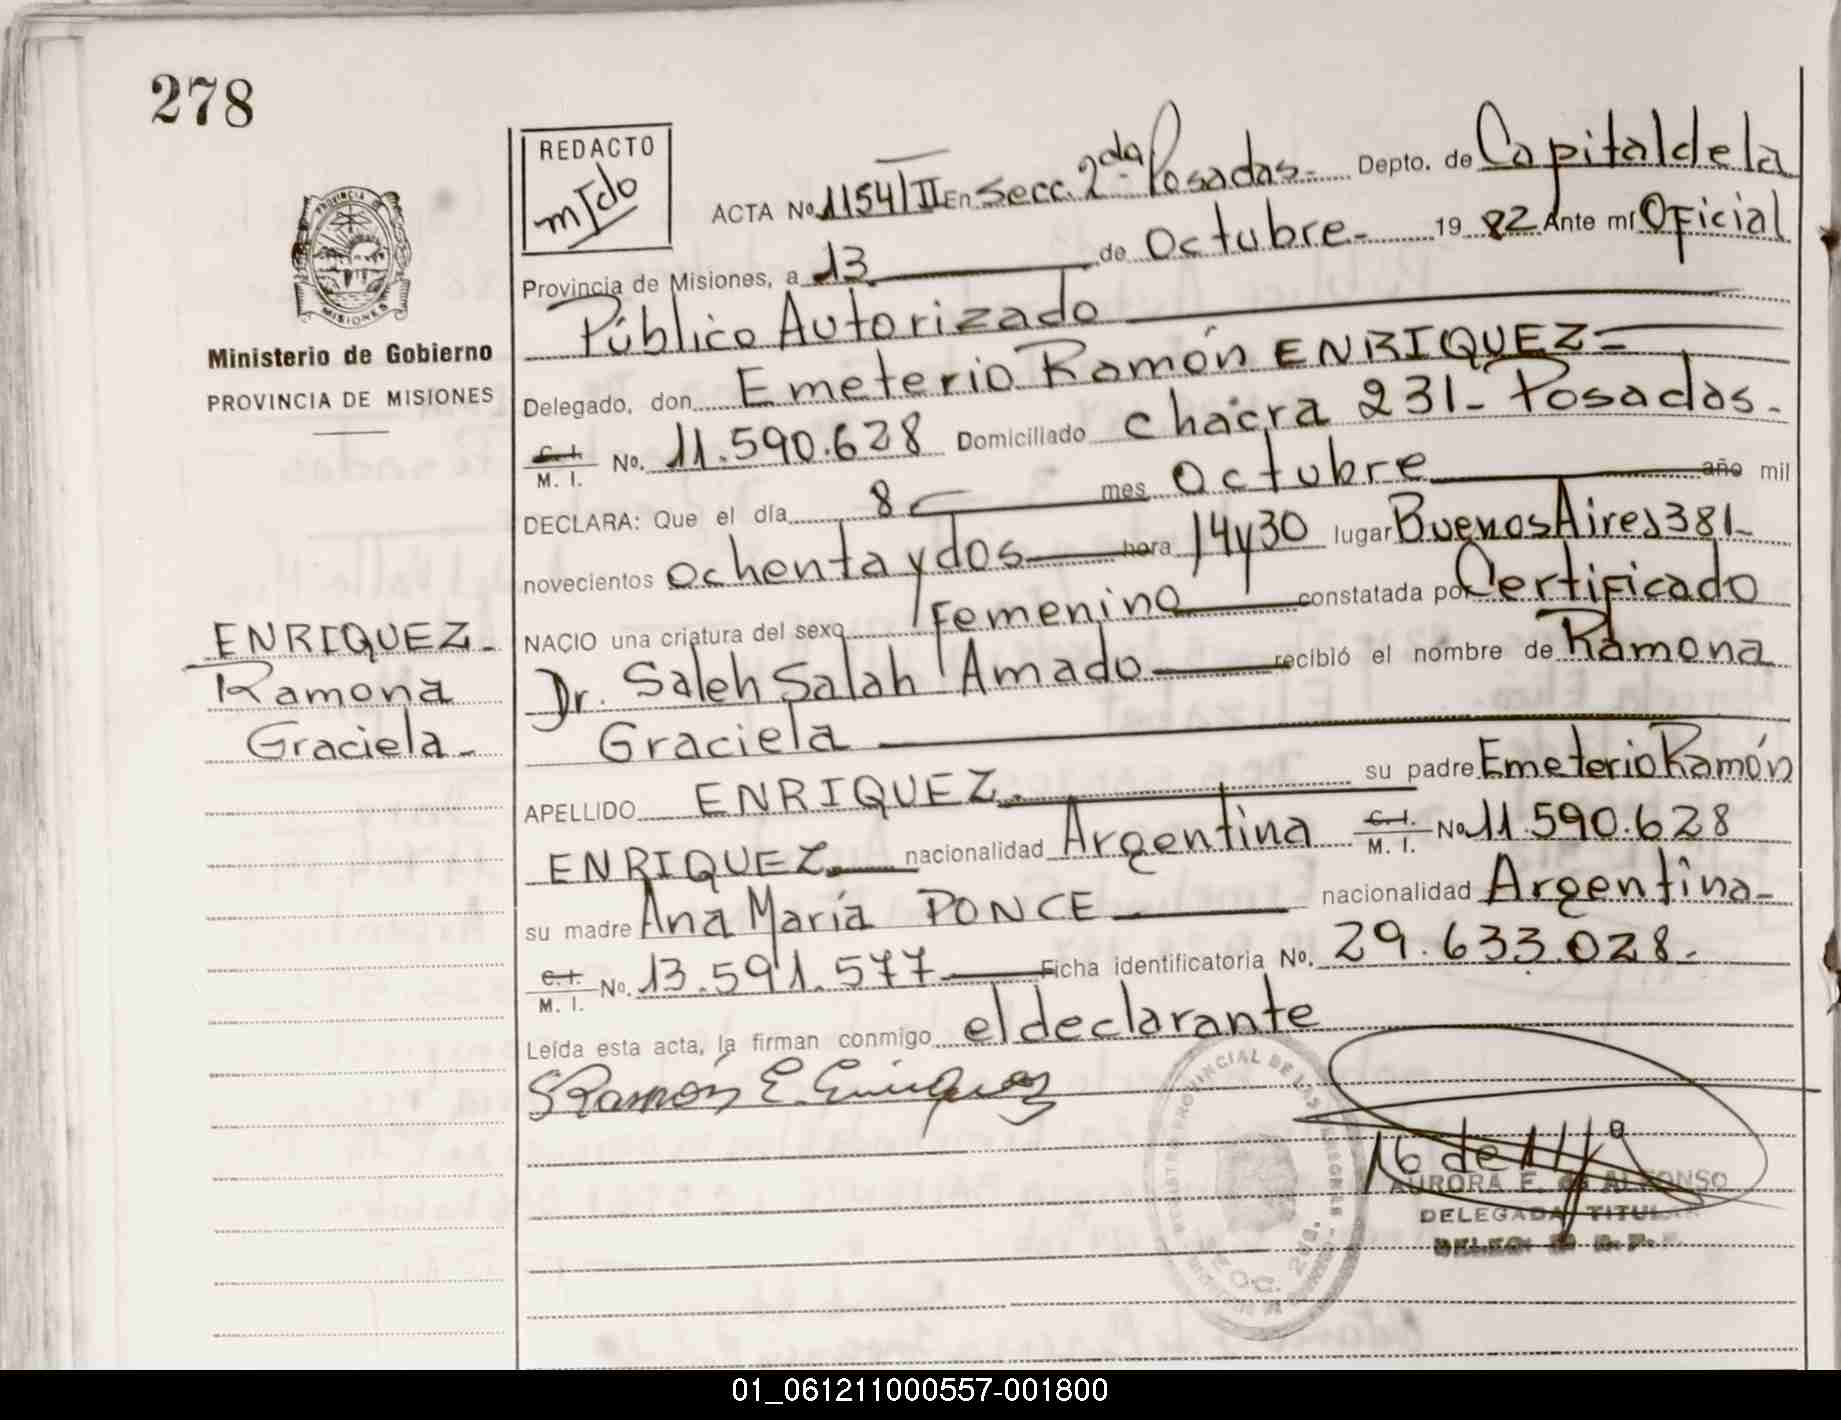 278
REDACTO
PROVINCIA DE
MISIONES
Ministerio de Gobierno
PROVINCIA DE MISIONES
ENRIQUEZ-
Ramona
Graciela-
ACTA No. 1154/II En Secc. 2da Posadas- Depto. de Capital de la
Provincia de Misiones, a 13 de Octubre- 19 82 Ante mí Oficial
Público Autorizado
Delegado, don Emeterio Ramón ENRIQUEZ-
C.I. M. I. No. 11.590.628 Domiciliado Chacra 231- Posadas-
DECLARA: Que el día 8 mes Octubre año mil
novecientos ochenta y dos hora 14 y 30 lugar Buenos Aires 381-
NACIO una criatura del sexo Femenino constatada por Certificado
Dr. Saleh Salah Amado recibió el nombre de Ramona
Graciela
APELLIDO ENRIQUEZ. su padre Emeterio Ramón
ENRIQUEZ. nacionalidad Argentina C.I. M. I. No. 11.590.628
su madre Ana María PONCE nacionalidad Argentina-
C.I. M. I. No. 13.591.577 Ficha identificatoria No. 29.633.028.
Leída esta acta, la firman conmigo el declarante
Ramón E. Enriquez
16 de
AURORA E. de ALFONSO
DELEGADA TITULAR
01_061211000557-001800